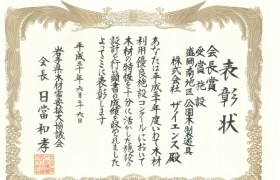 表彰状
会長賞
受賞施設
盛岡南地区公園木製遊具
株式会社 ザイエンス殿
あなたは平成三十年度いわて木材
利用優良施設コンクールにおいて
木材の特性を十分に活かした施設の
設計を行い顕著な成績を収められました
よってここに表彰します
平成三十年六月十六日
岩手県木材需要拡大協議会
会長 日當和孝